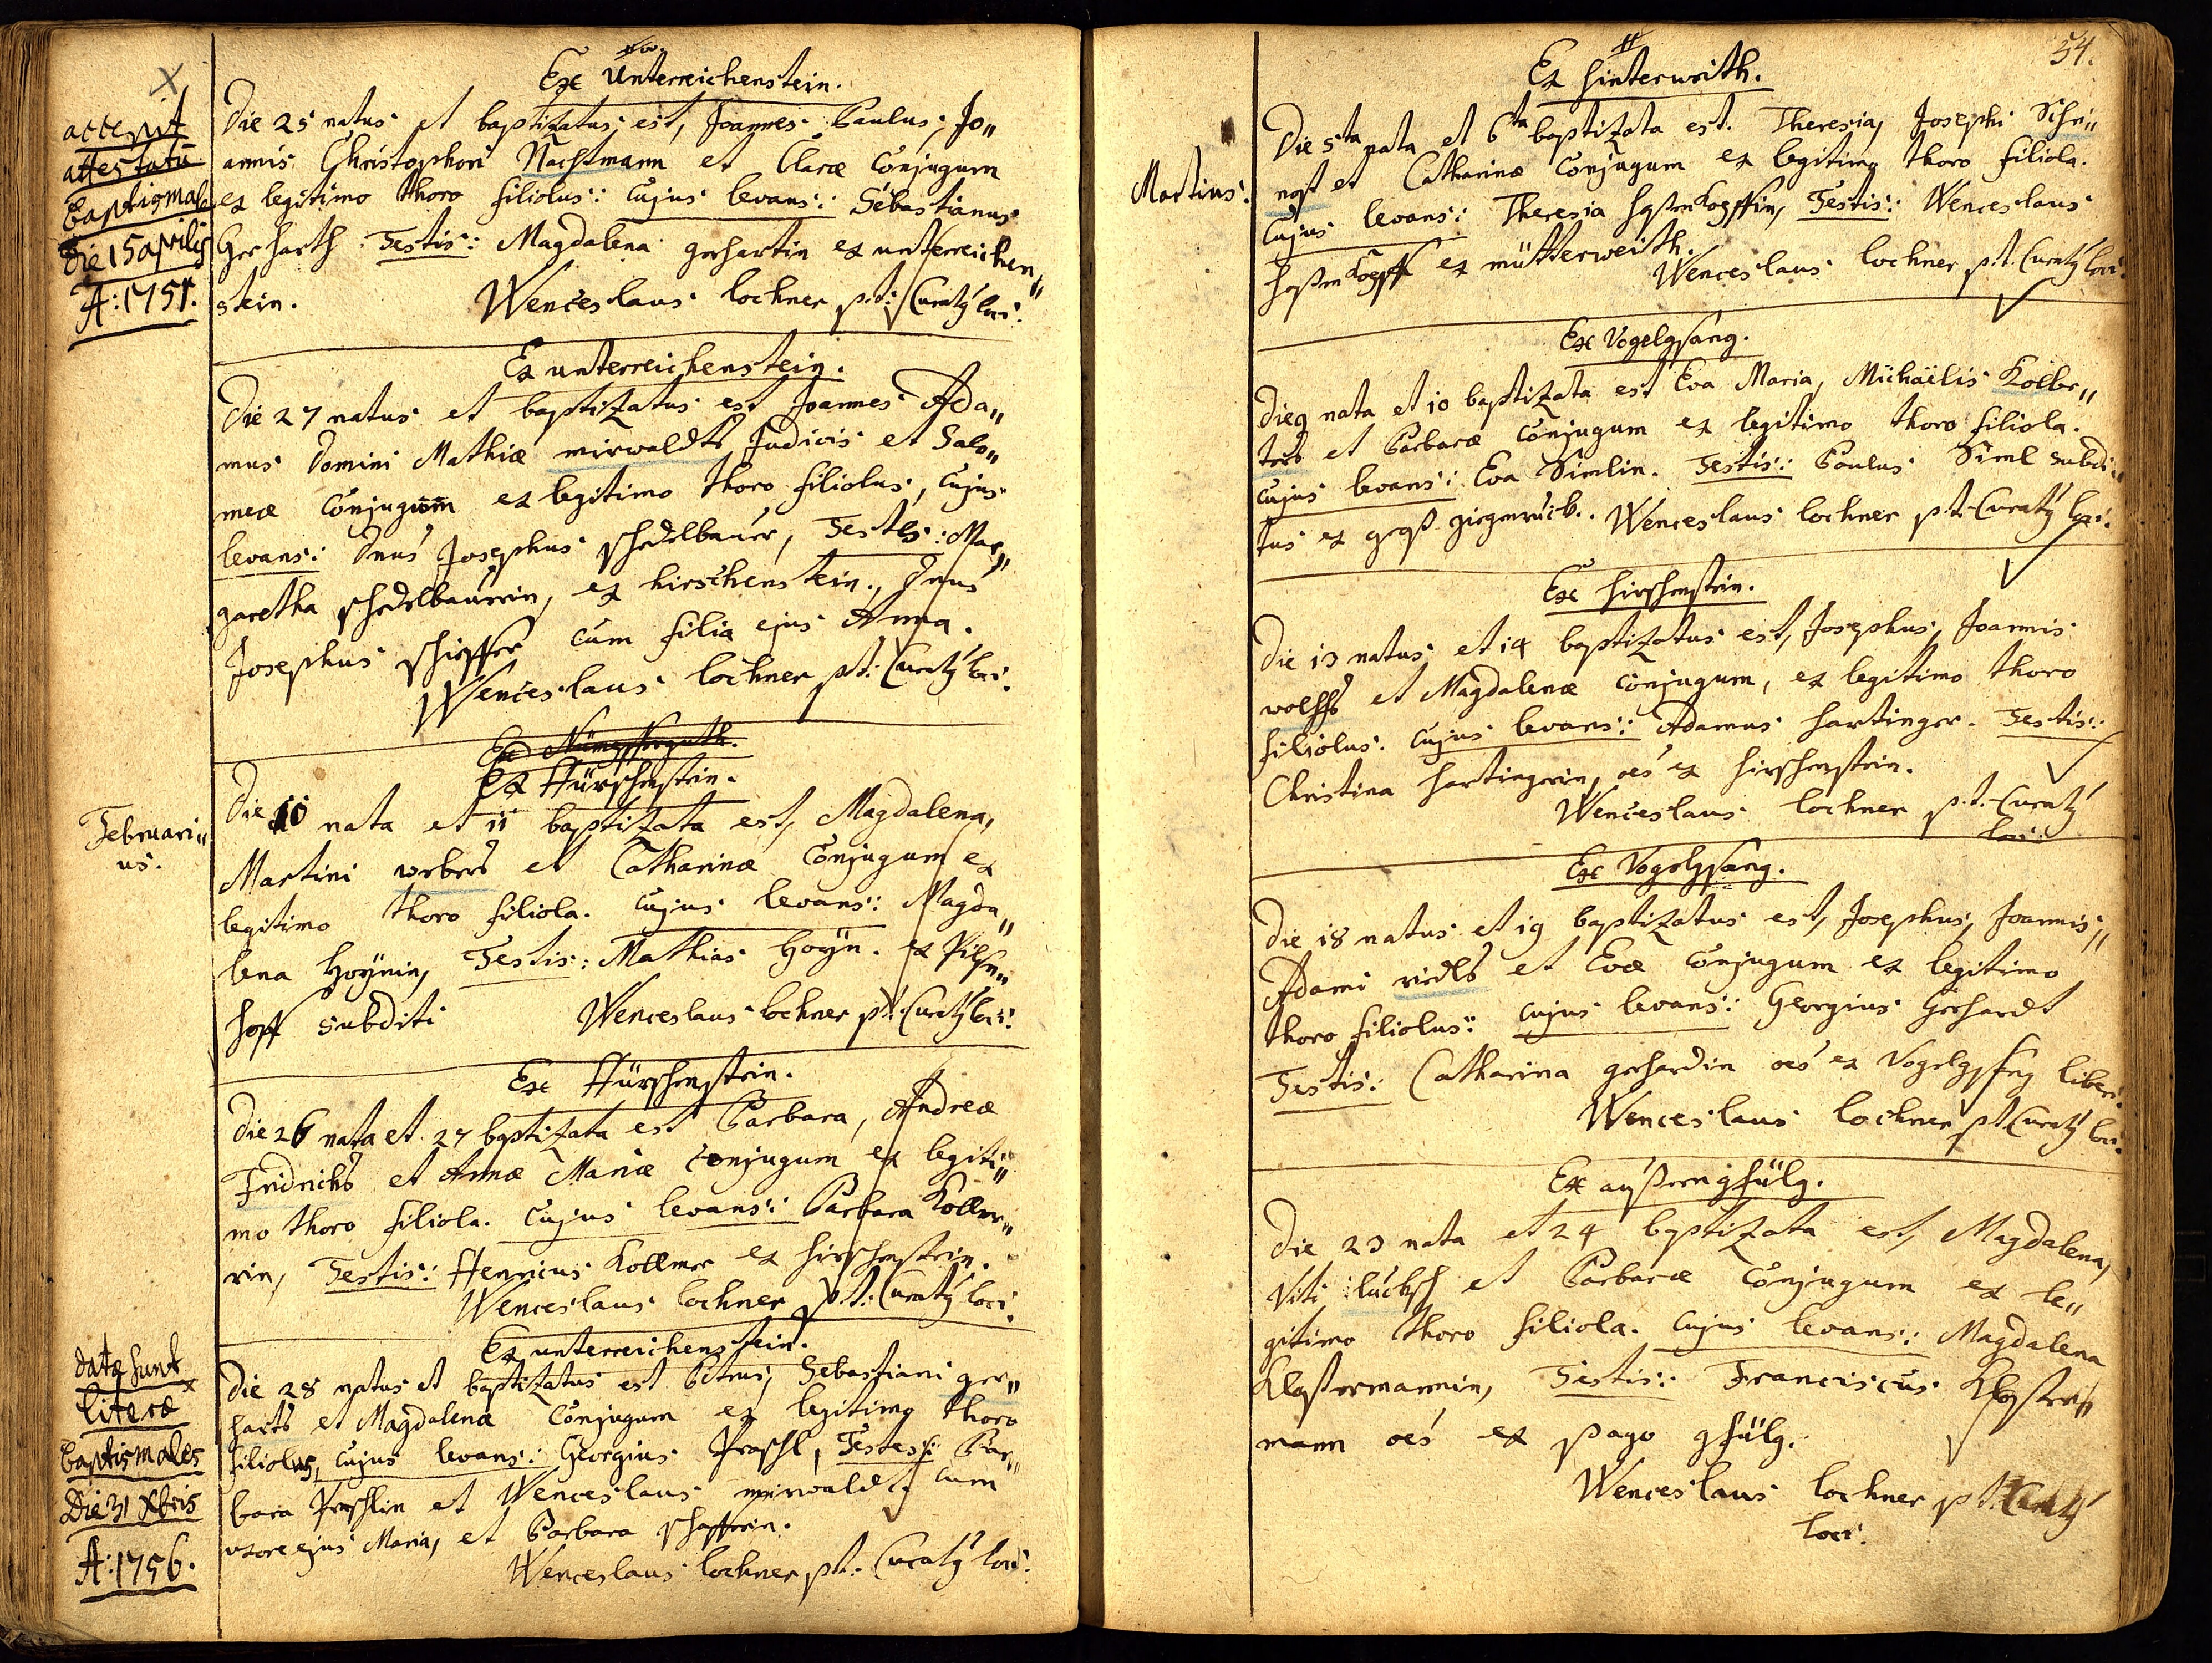 Exc Unterreichenstein.
accepit
attestatū
Baptismale
die 15 aprilis
A: 1751.
Die 25 natus et baptizatus est, Joannes Paulus, Jo„
annis Christophori Nachtmann et Claræ Conjugum
ex legitimo thoro filiolus: Cujus levans: Sebastianus
Gerharth Testis: Magdalena gerhartin ex unterreichen„
stein. Wenceslaus lochner p.t: Curatq loci.
Ex unterreichenstein.
Die 27 natus et baptizatus est Joannes Ada„
mus Domini Mathiæ mirwaldts Judicis et Salo„
meæ Conjugum ex legitimo thoro filiolus, Cujus
levans: Dnus Josephus schedlbauer, Testes: Mar„
garetha schedlbaurin, ex hirschenstein., Dnus
Josephus cum filia ejus Anna.
Wenceslaus lochner p.t: Curatq loci.
Ex Hürschenstein.
Februari„
us.
Die 10 nata et 11 baptizata est, Magdalena,
Martini webers et Catharinæ Conjugum ex
legitimo thoro filiola. Cujus levans: Magda„
lena hoÿnin, Testis: Mathias hoÿn. ex Pilsn„
hoff subditi Wenceslaus lochner p.t: Curatq loci.
Exc Hürschenstein.
Die 26 nata et 27 baptizata est Barbara, Andreæ
Fridrichs et Annæ Mariæ Conjugum ex legiti„
mo thoro filiola. Cujus levans: Barbara Kollme„
rin, Testis: Henricus Kollmer ex hirschenstein.
Wenceslaus lochner p.t: Curatq loci.
Ex unterreichenstein.
datæ sunt
literæ
baptismales
Die 31 Xbris
A: 1756.
Die 28 natus et baptizatus est Petrus, Sebastiani ger„
harts et Magdalenæ Conjugum ex legitimo thoro
filiolus, Cujus levans: Georgius Praschl, Testes: Bar„
bara Praschlin et Wenceslaus mirwaldt cum
uxore ejus Maria, et Barbara
Wenceslaus lochner p.t: Curatq loci.
54.
Ex hinterwrith.
Martius:
Die 5ta nata et 6ta baptizata est. Theresia, Josephi Schri„
nost et Catharinæ Conjugum ex legitimo thoro filiola.
Cujus levans: Theresia hasenkopffin, Testis: Wenceslaus
hasenkopff ex mütterweith.
Wenceslaus lochner p.t. Curatq loci.
Exc Vogelgsang.
Die 9 nata et 10 baptizata est Eva Maria, Michaëlis Kolbe„
ters et Barbaræ Conjugum ex legitimo thoro filiola.
Cujus levans: Eva Simlin. Testis: Paulus Siml subdi„
tus ex groß zirgenruck. Wenceslaus lochner p.t. Curatq loci.
Exc hirschenstein.
Die 13 natus et 14 baptizatus est, Josephus, Joannis
wolffs et Magdalenæ Conjugum, ex legitimo thoro
filiolus. Cujus levans: Adamus hartinger. Testis:
Christina hartingerin, oēs ex hirschenstein.
Wenceslaus lochner p.t. Curatq
loci.
Exc Vogelgsang.
Die 18 natus et 19 baptizatus est, Josephus, Joannis„
Adami riedls et Evæ Conjugum ex legitimo
thoro filiolus: Cujus levans: Georgius Gerhardt
Testis: Catharina gerhardin oēs ex Vogelgsang liberi.
Wenceslaus lochner p.t. Curatq loci.
Exc außerngfülg.
Die 23 nata et 24 baptizata est, Magdalena,
Viti lucksch et Barbaræ Conjugum ex le„
gitimo thoro filiola. Cujus levans: Magdalena
Klostermannin, Testis: Franciscus Kloster„
mann oēs ex pago gfülg.
Wenceslaus lochner p.t. Curatq
loci.